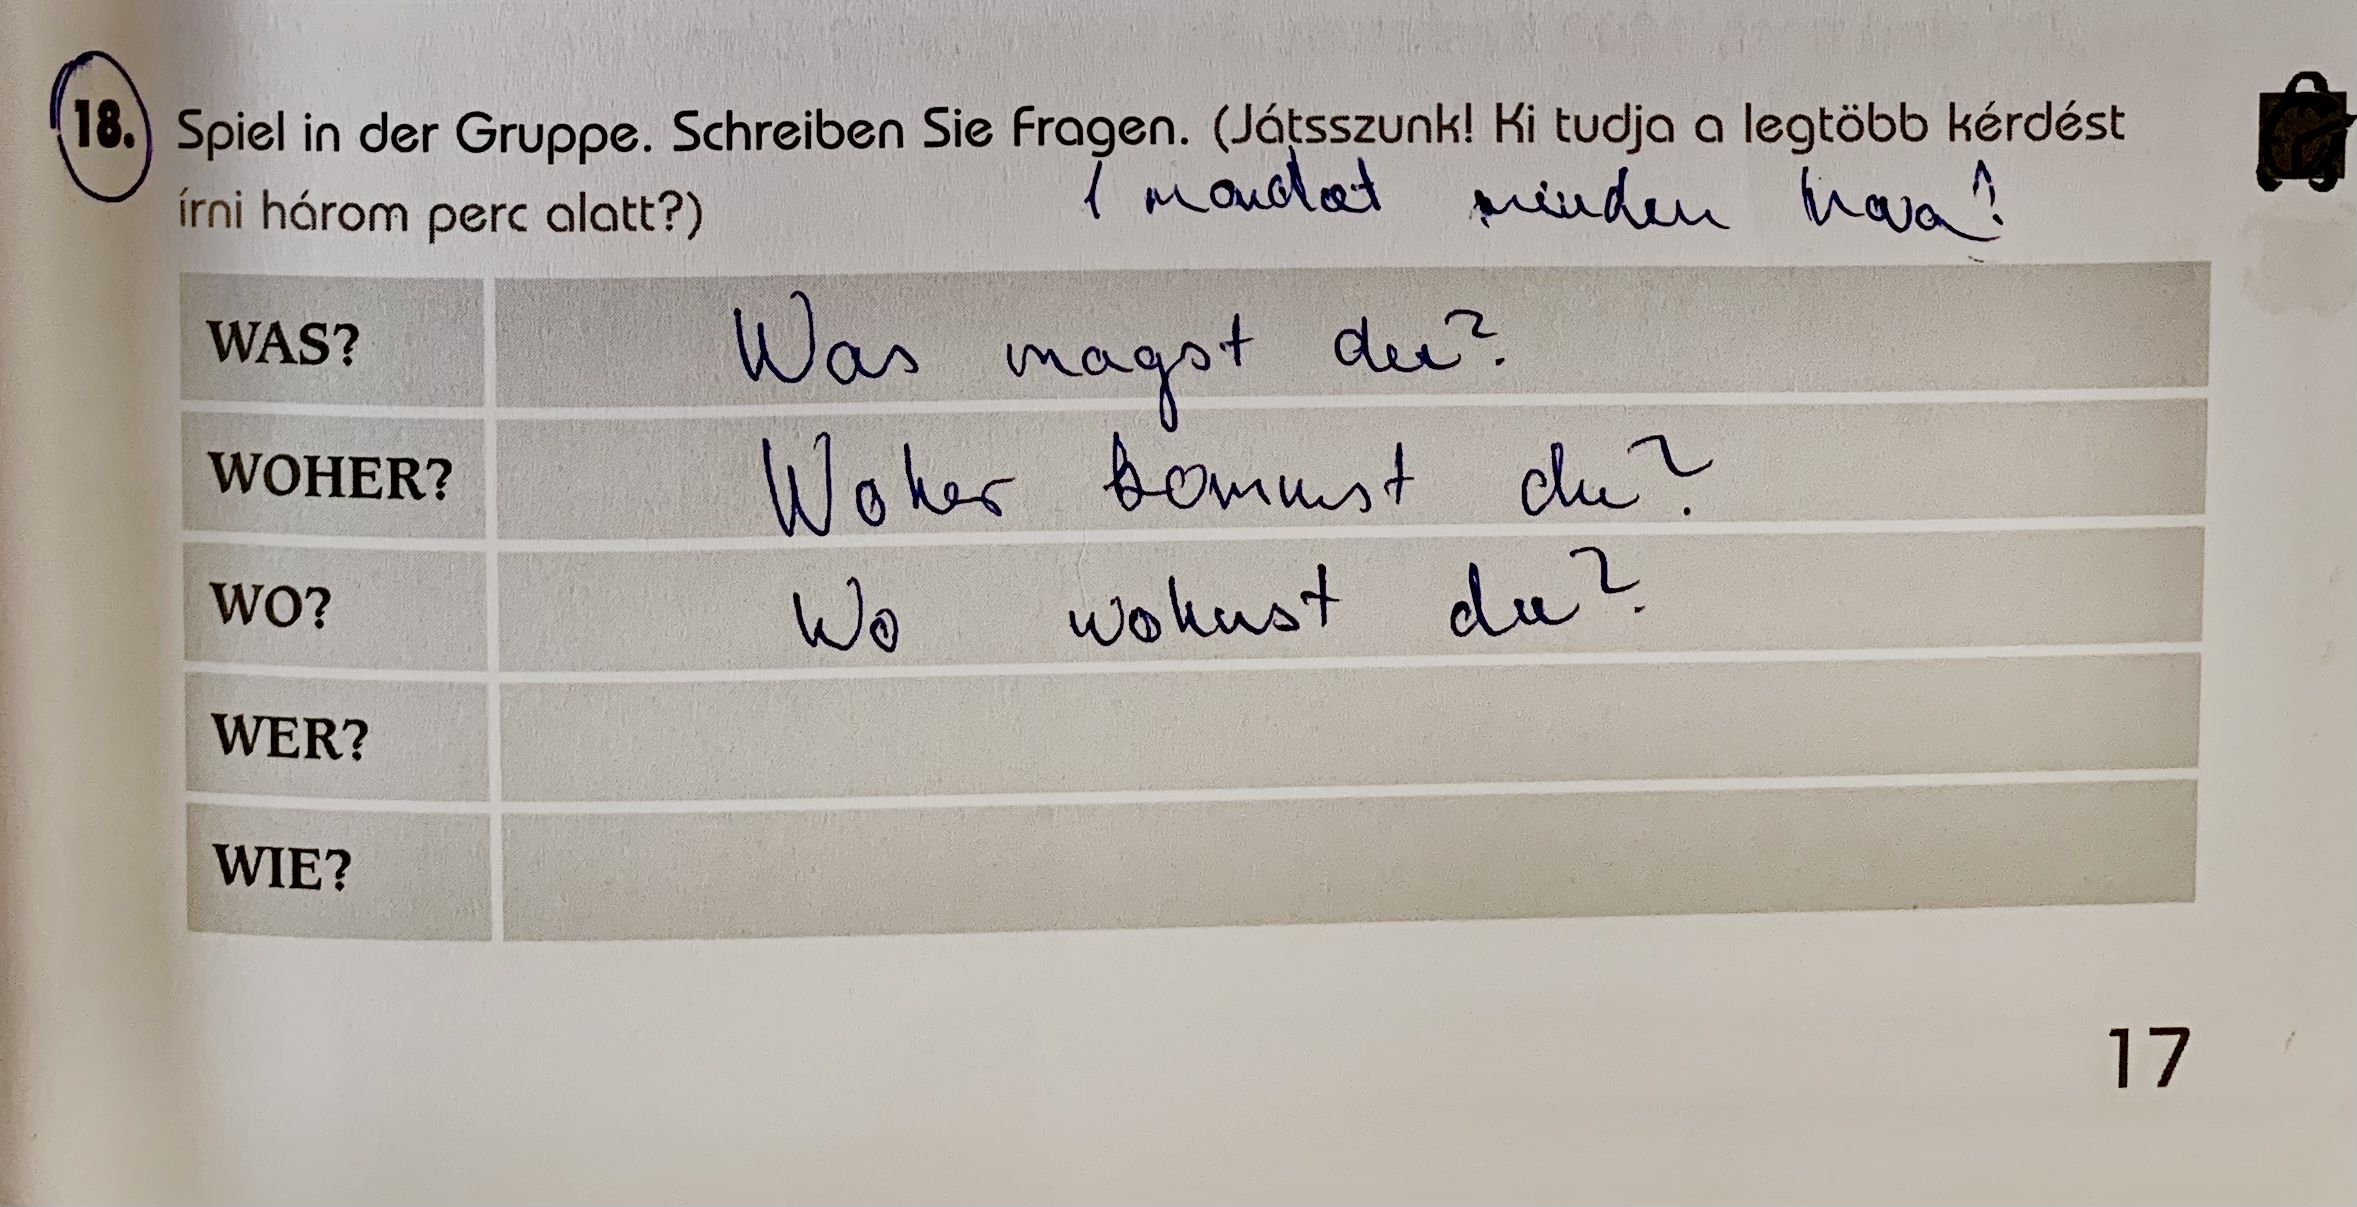 18. Spiel in der Gruppe. Schreiben Sie Fragen. (Játsszunk! Ki tudja a legtöbb kérdést
írni három perc alatt?)
1 mondat minden
WAS? Was magst du?
WOHER? Woher kommst du?
WO? Wo wohnst du?
WER?
WIE?
17